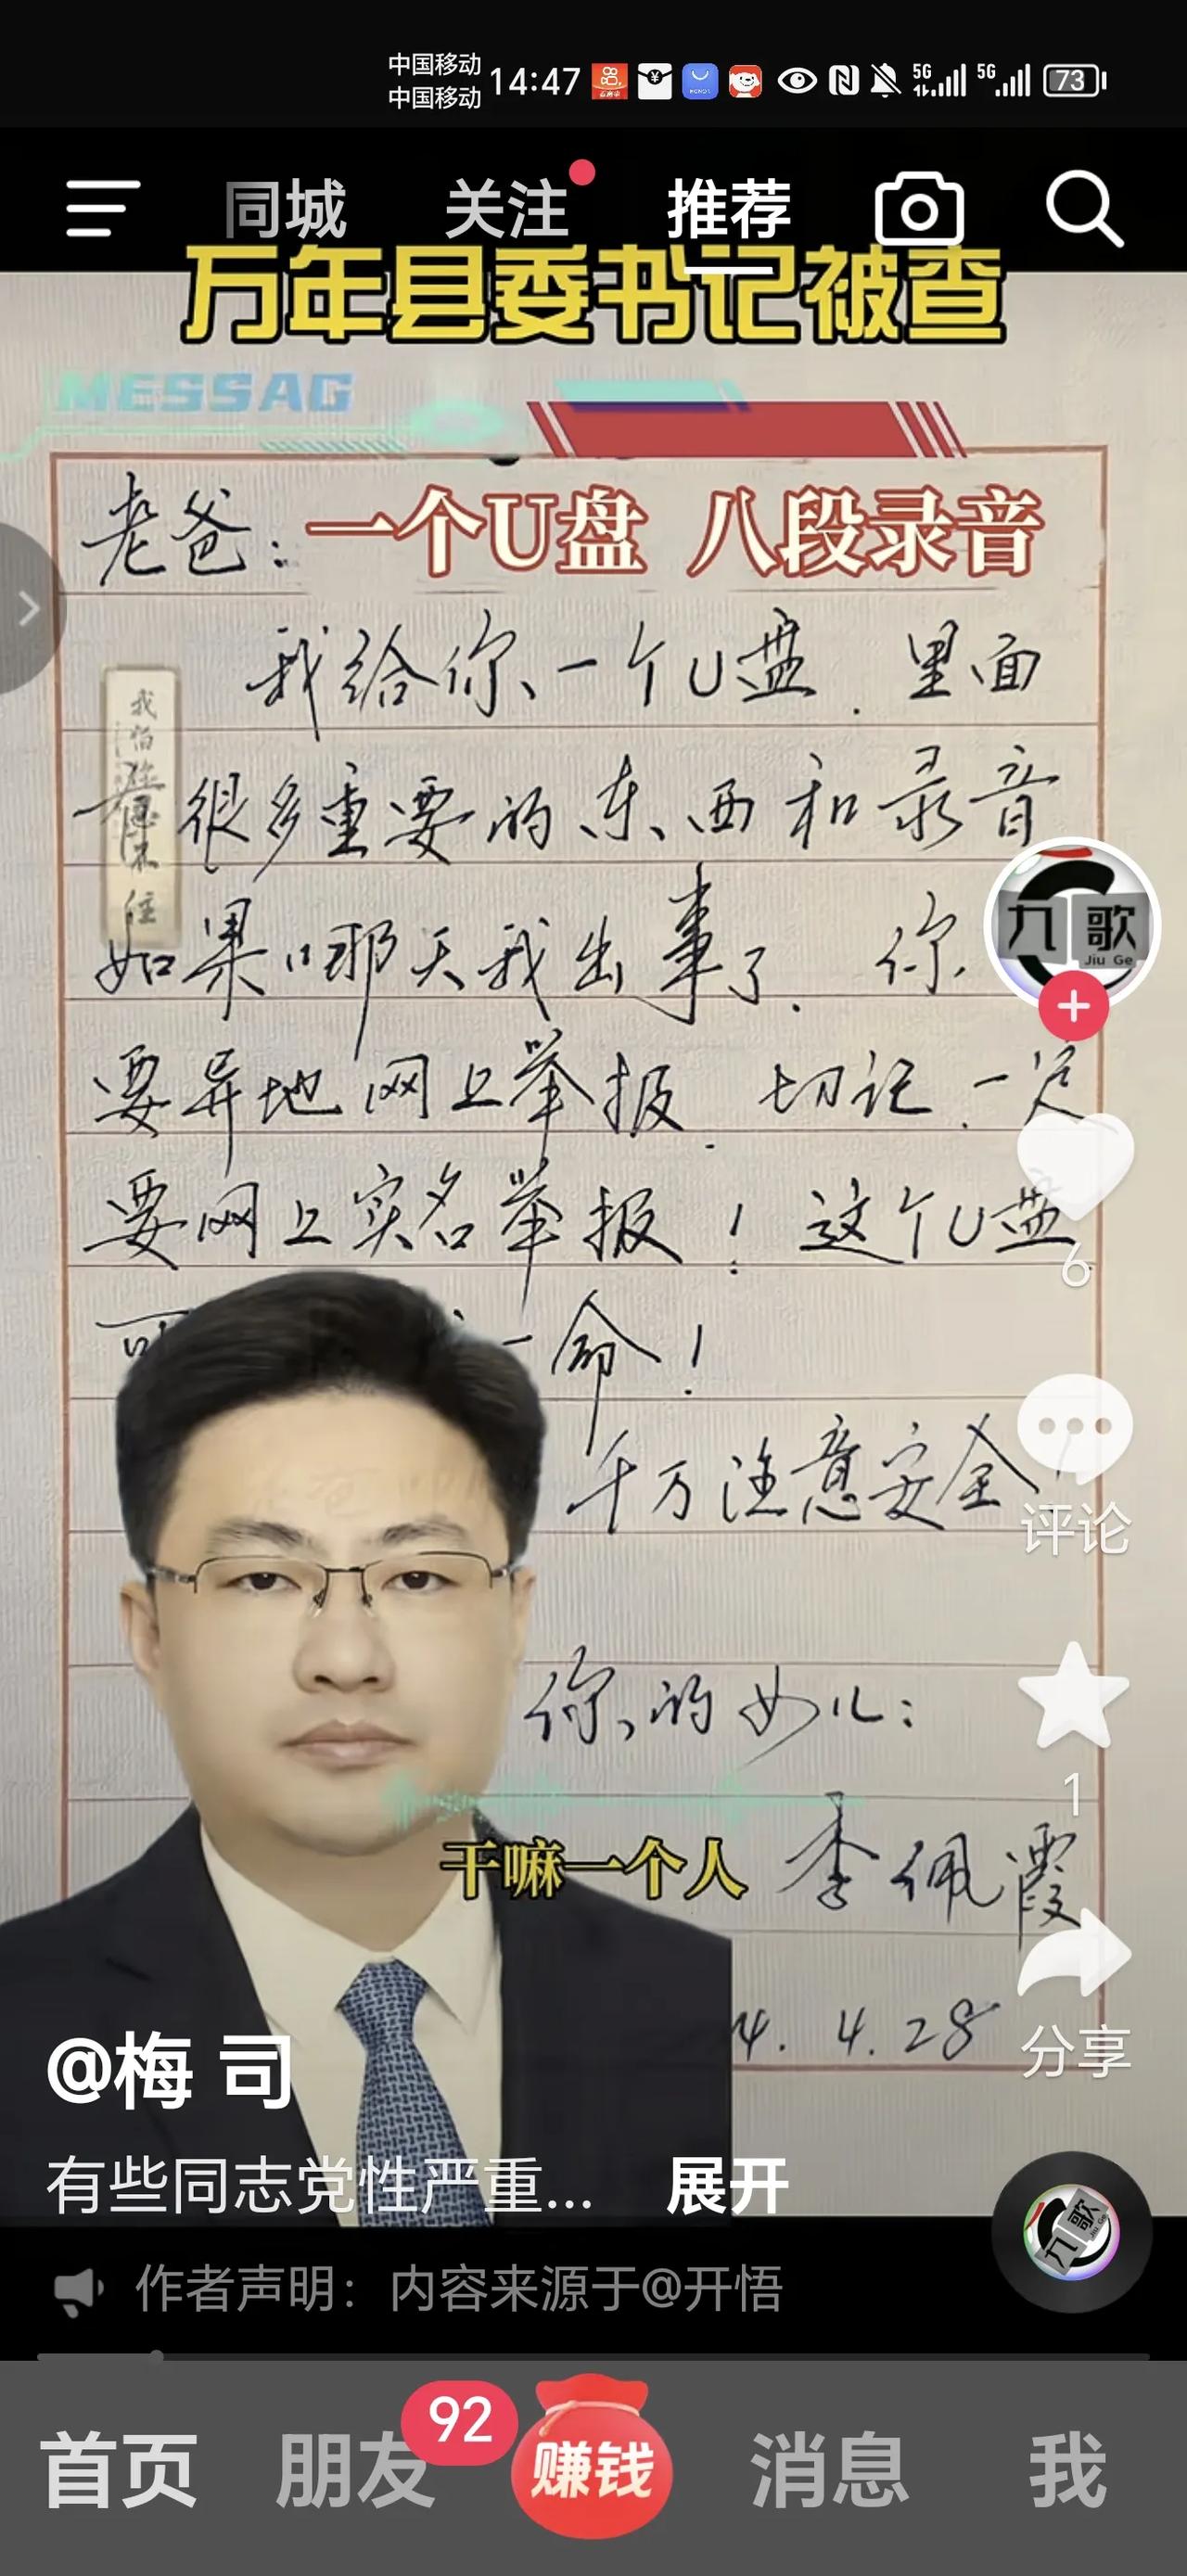 中国移动
中国移动
14:47
5G
5G
73
同城
关注
推荐
万年县委书记被查
MESSAG
老爸：
一个U盘 八段录音
我给你一个U盘．里面
我怕
住
有很多重要的东西和录音
如果哪天我出事了．你
要异地网上举报．切记．一定
要网上实名举报！这个U盘
可
一命！
千万注意安全
你的女儿：
李佩霞
4.4.28
干嘛一个人
九歌
Jiu Ge
6
评论
1
分享
@梅 司
有些同志党性严重...
展开
作者声明：内容来源于@开悟
九歌
首页
朋友
92
赚钱
消息
我